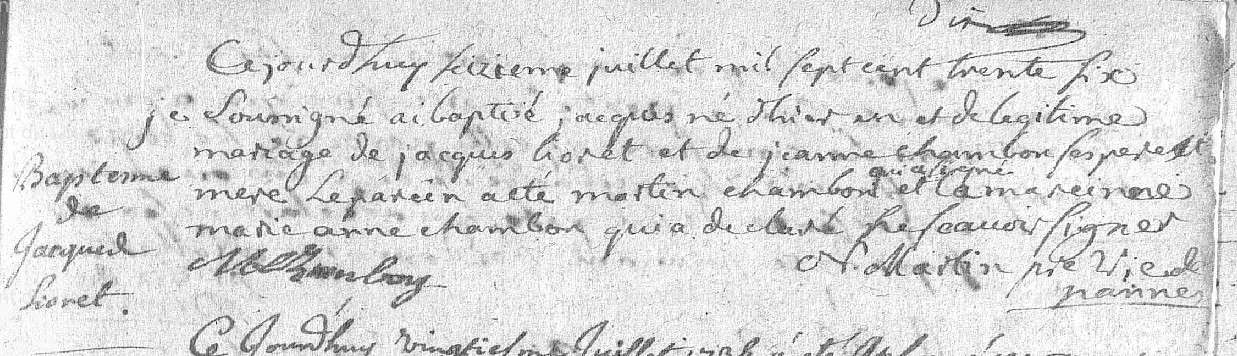 Ce jourdhuy seizieme juillet mil sept cent trente six
je soussigné ai baptisé jacques né d'hier en et de legitime
mariage de jacques lioret et de jeanne chambon ses pere et
mere le parein a eté martin chambon qui a signé et la mareinne
marie anne chambon qui a declaré ne scavoir signer
N. Martin pre vic de
nanne
Baptesme
de
Jacques
lioret.
Ce Jourdhuy vingtiesme Juillet